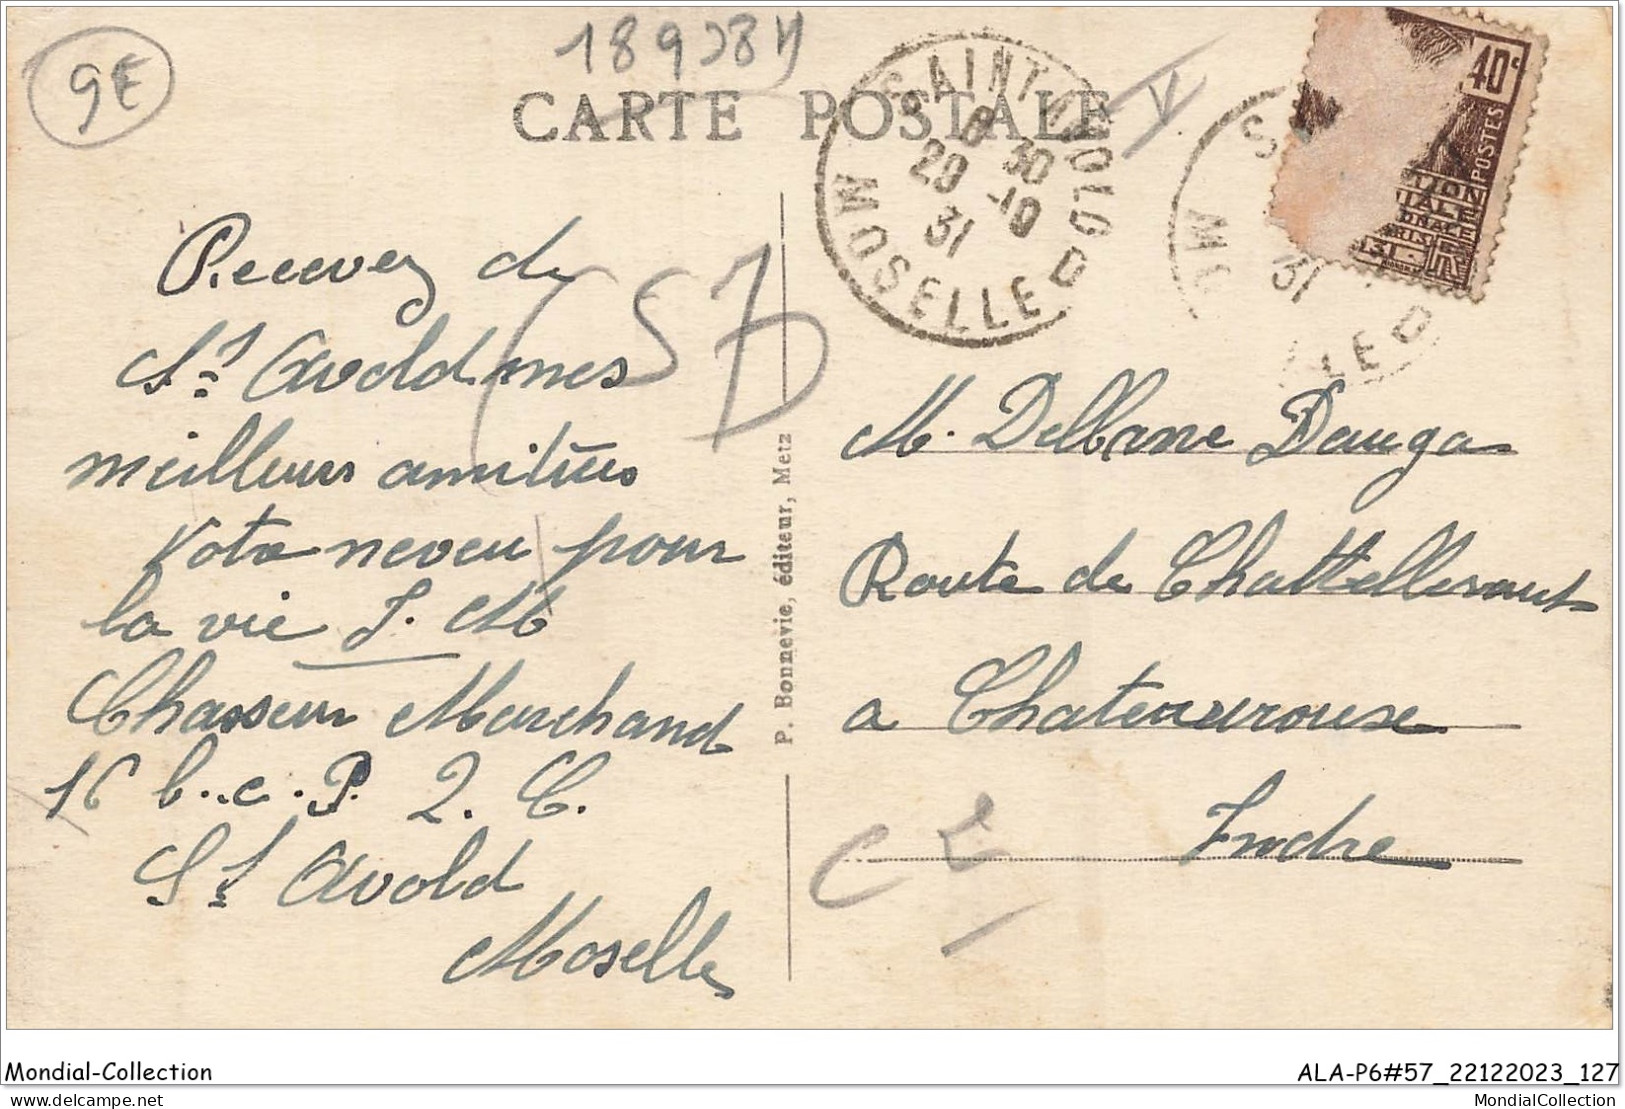 9E
18938Y
CARTE POSTALE
SAINT-AVOLD
18 30
20 -10
31
MOSELLE
40c
POSTES
31
LLE
Recevez de
St Avold mes
meilleurs amitiés
Votre neveu pour
la vie J. M
Chasseur Marchand
16 b.c.P. 2. C.
St Avold
Moselle
57
P. Bonnevie, éditeur, Metz
M. Dellane Dauga
Route de Chattellerault
a Chateauroux
Indre
Mondial-Collection
ALA-P6#57_22122023_127
Mondial-Collection.net
MondialCollection